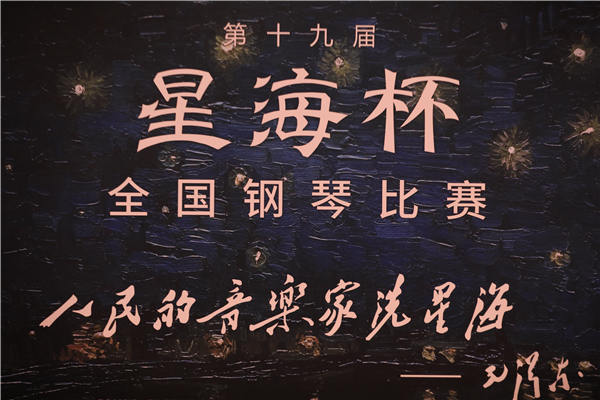 第十九届
星海杯
全国钢琴比赛
人民的音樂家洗星海
——毛泽东